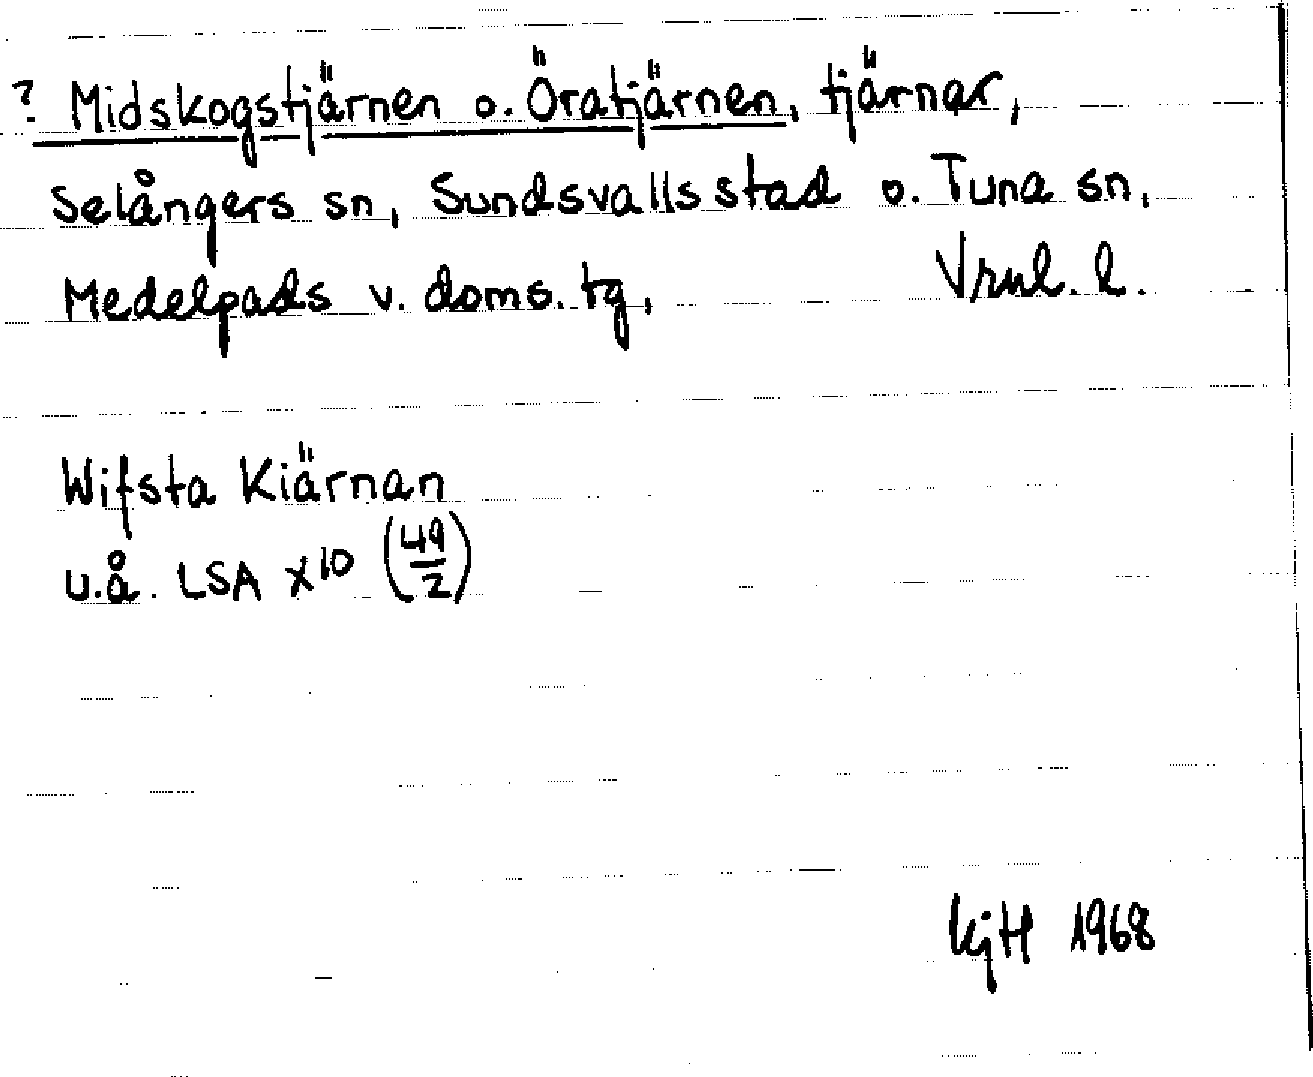 ? Midskogstjärnen o. Öratjärnen, tjärnar,
Selångers sn, Sundsvalls stad o. Tuna sn,
Medelpads v. doms. tg, Vrnl. l.
Wifsta Kiärnan
u.å. LSA X10 (49/2)
KjH 1968